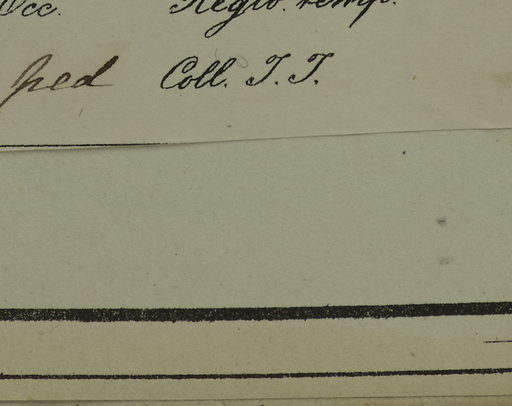 Occ. Regio. temp.
ped Coll. T. T.